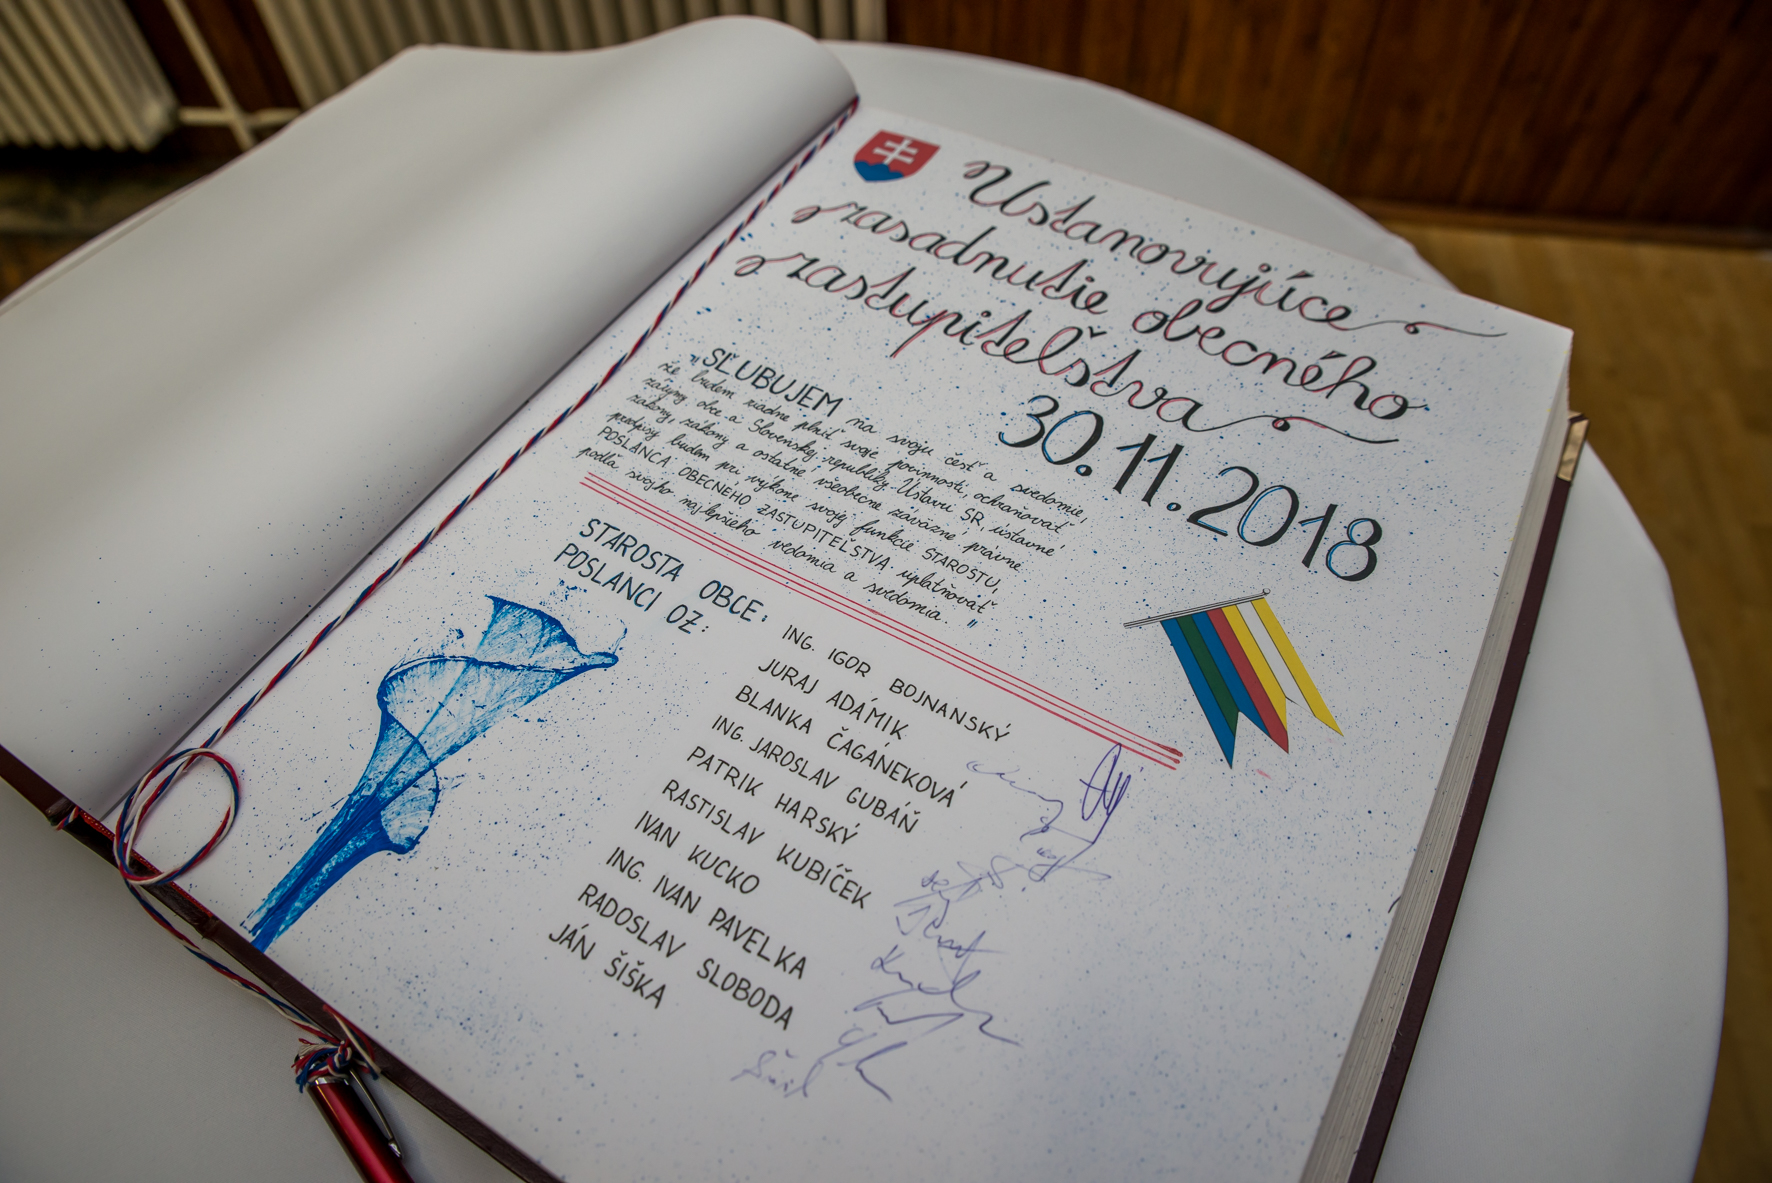 Ustanovujúce
zasadnutie obecného
zastupiteľstva
30.11.2018
"SĽUBUJEM na svoju česť a svedomie,
že budem riadne plniť svoje povinnosti, ochraňovať
záujmy obce a Slovenskej republiky. Ústavu SR, ústavné
zákony, zákony a ostatné všeobecne záväzné právne
predpisy budem pri výkone svojej funkcie STAROSTU,
POSLANCA OBECNÉHO ZASTUPITEĽSTVA uplatňovať
podľa svojho najlepšieho vedomia a svedomia."
STAROSTA OBCE: ING. IGOR BOJNANSKÝ
POSLANCI OZ: JURAJ ADÁMIK
BLANKA ČAGÁNEKOVÁ
ING. JAROSLAV GUBÁŇ
PATRIK HARSKÝ
RASTISLAV KUBÍČEK
IVAN KUCKO
ING. IVAN PAVELKA
RADOSLAV SLOBODA
JÁN ŠIŠKA